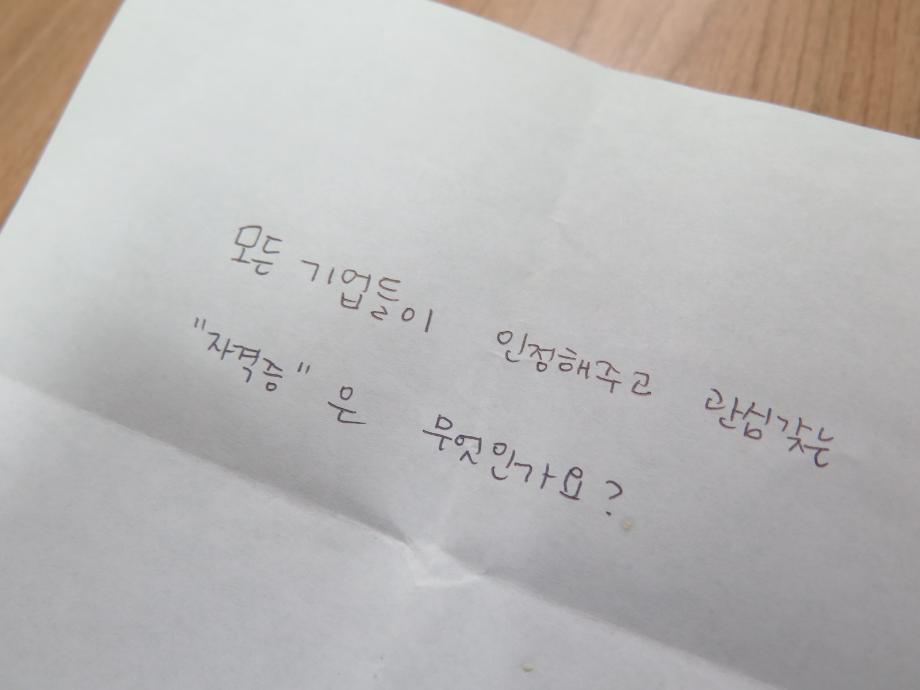 모든 기업들이 인정해주고 관심갖는
"자격증"은 무엇인가요?